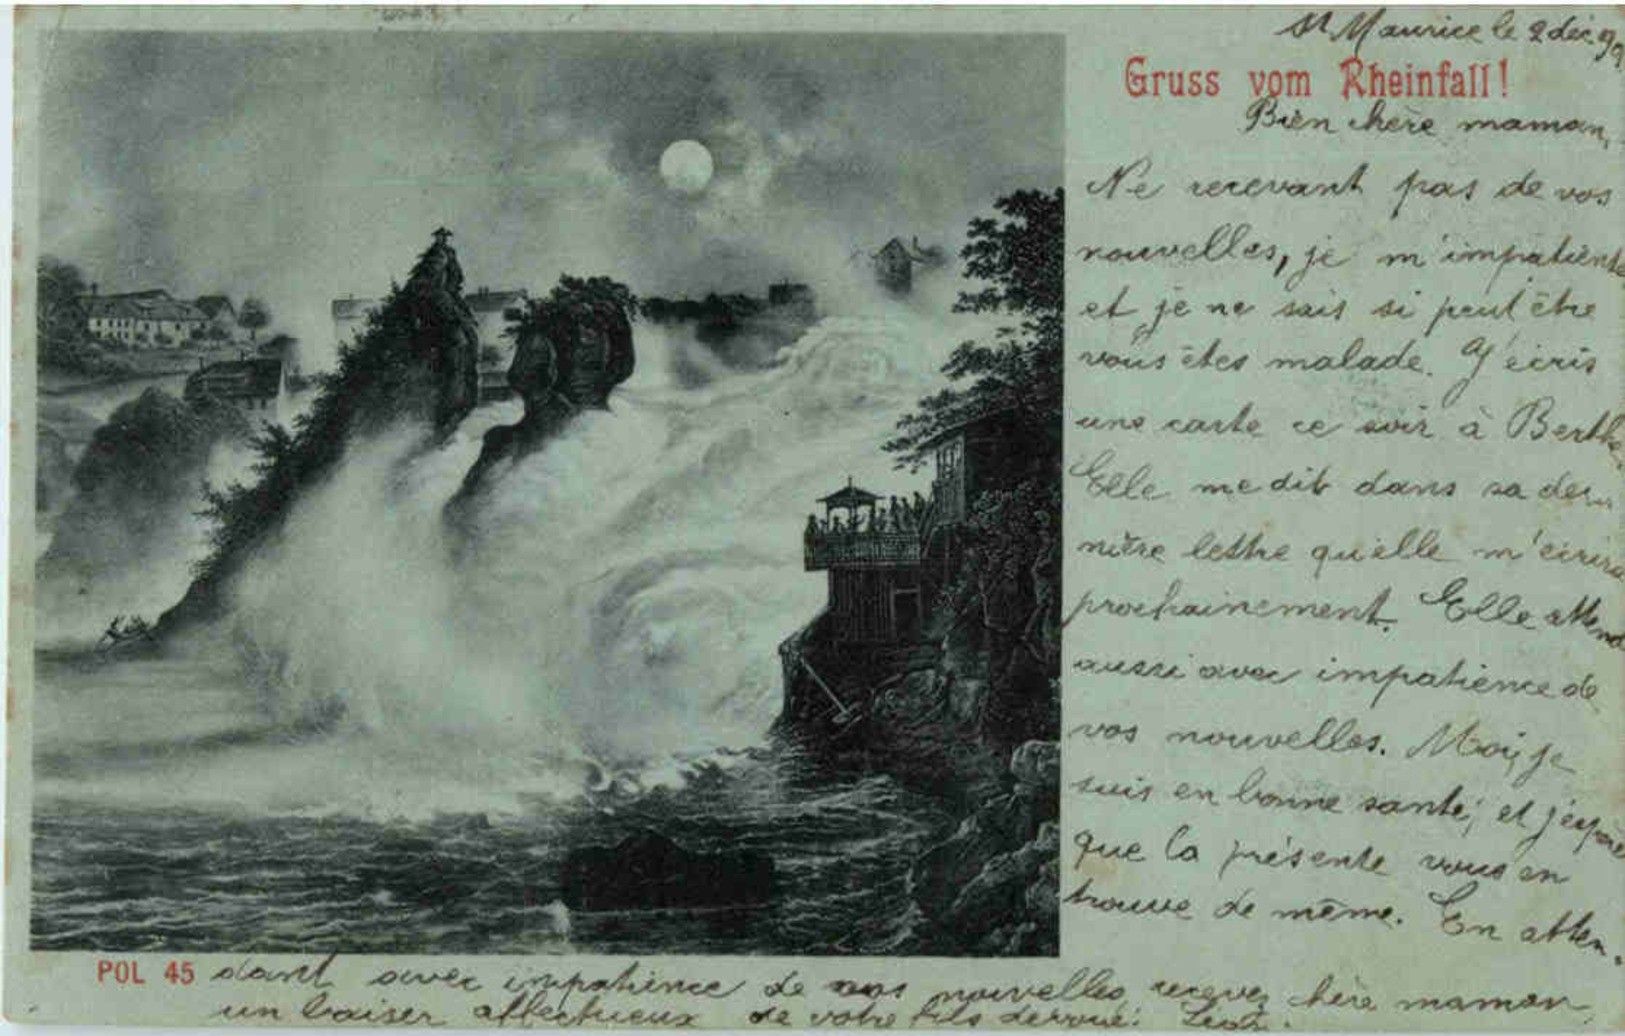 St Maurice le 2 déc. 99
Gruss vom Rheinfall!
Bien chère maman,
Ne recevant pas de vos
nouvelles, je m'impatiente
et je ne sais si peut être
vous êtes malade. J'écris
une carte ce soir à Berthe.
Elle me dit dans sa der-
nière lettre qu'elle m'écrira
prochainement. Elle attend
aussi avec impatience de
vos nouvelles. Moi, je
suis en bonne santé; et j'éspère
que la présente vous en
trouve de même. En atten-
POL 45
dant avec impatience de vos nouvelles, recevez chère maman,
un baiser affectueux de votre fils dévoué: